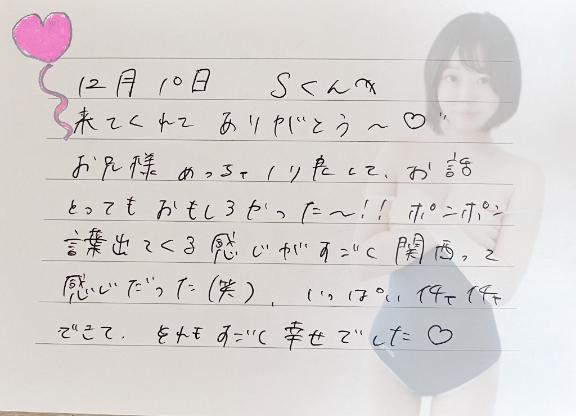 12月10日 Sくんへ
来てくれて ありがとう〜♡
お兄様 めっちゃ して、お話
とっても おもしろかった〜!! ポンポン
言葉出てくる感じがすごく関西って
感じだった(笑)、いっぱい イチャイチャ
できて、それもすごく幸せでした♡